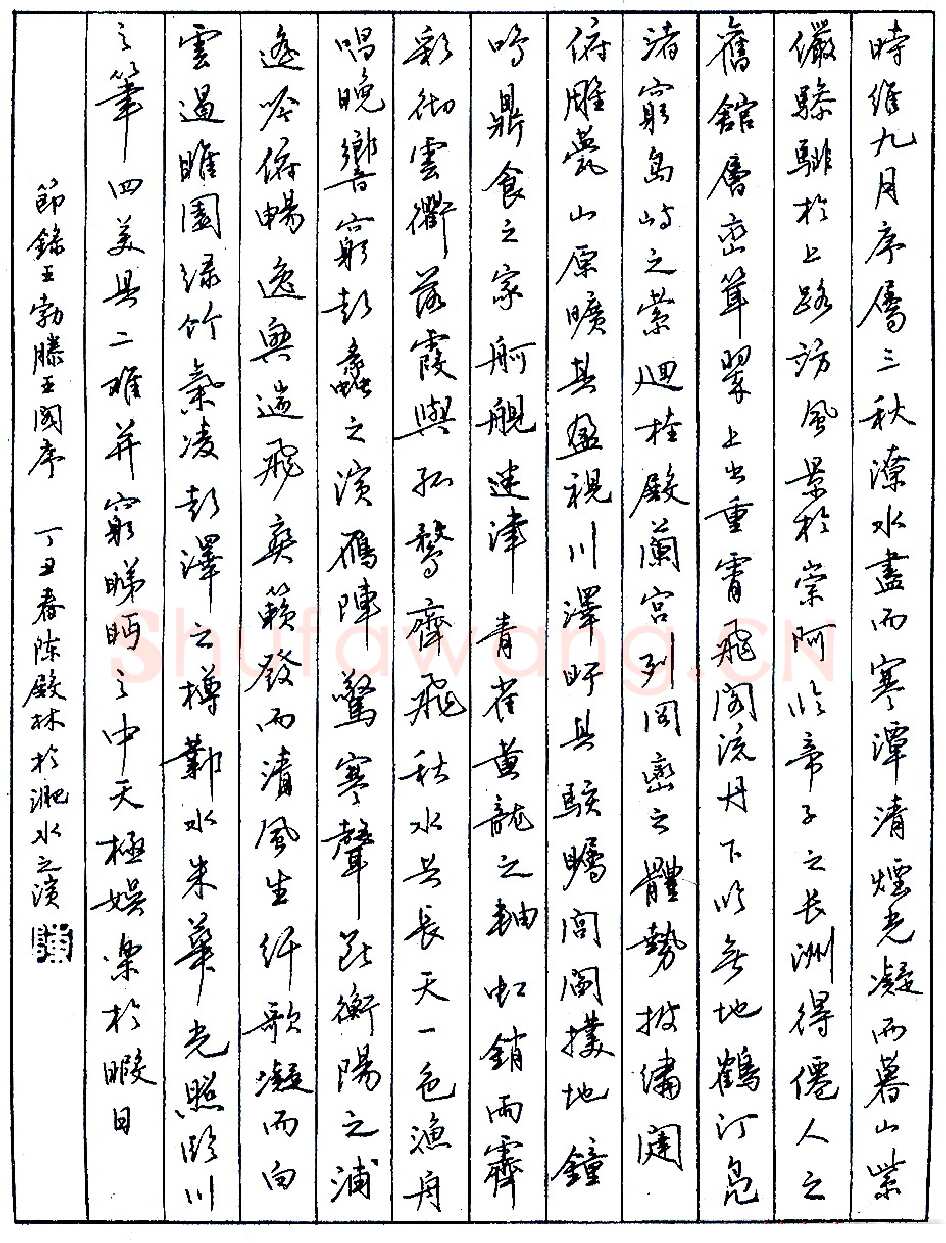 時維九月序屬三秋潦水盡而寒潭清煙光凝而暮山紫
儼驂騑於上路訪風景於崇阿臨帝子之長洲得僊人之
舊館層巒聳翠上出重霄飛閣流丹下臨無地鶴汀鳧
渚窮島嶼之縈迴桂殿蘭宮列岡巒之體勢披繡闥
俯雕甍山原曠其盈視川澤盱其駭矚閭閻撲地鐘
鳴鼎食之家舸艦迷津青雀黃龍之軸虹銷雨霽
彩徹雲衢落霞與孤鶩齊飛秋水共長天一色漁舟
唱晚響窮彭蠡之濱雁陣驚寒聲斷衡陽之浦
遙吟俯暢逸興遄飛爽籟發而清風生纤歌凝而白
雲遏睢園绿竹氣凌彭澤之樽鄴水朱華光照臨川
之筆四美具二难并窮睇眄之中天極娱樂於暇日
節錄王勃滕王阁序 丁丑春陈殿林於淝水之濱
Shufawang.CN